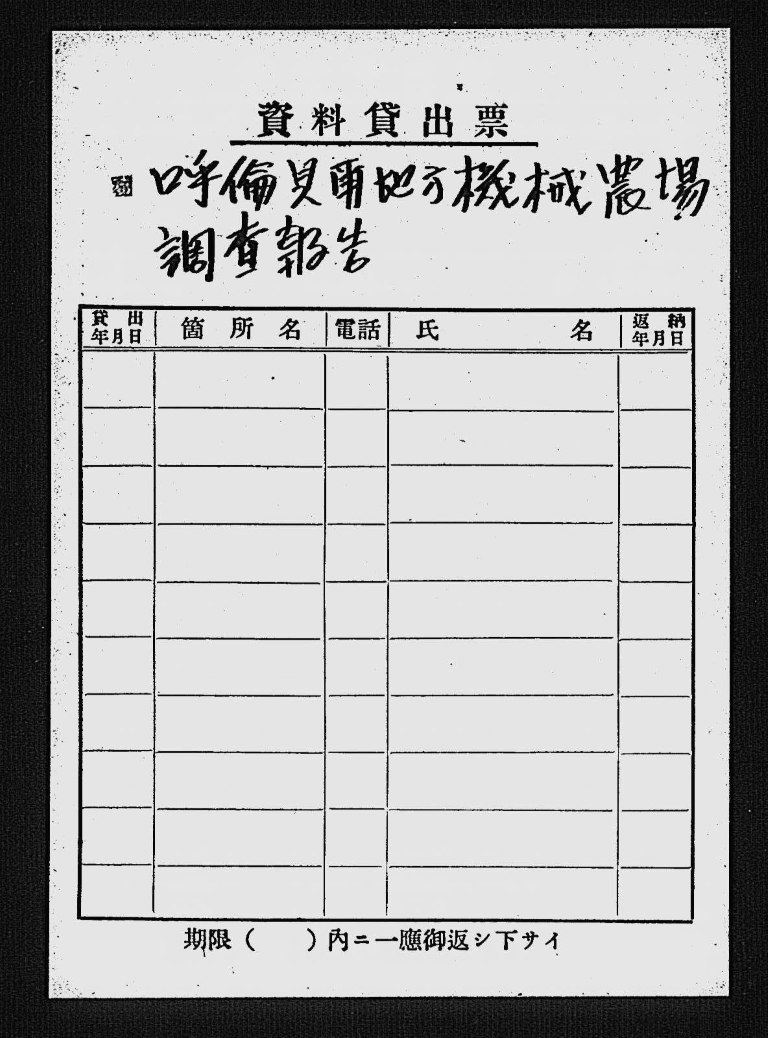 資料貸出票
呼倫貝爾地方機械農場
調査報告
貸出年月日 箇所名 電話 氏名 返納年月日
期限（　　）内ニ一應御返シ下サイ